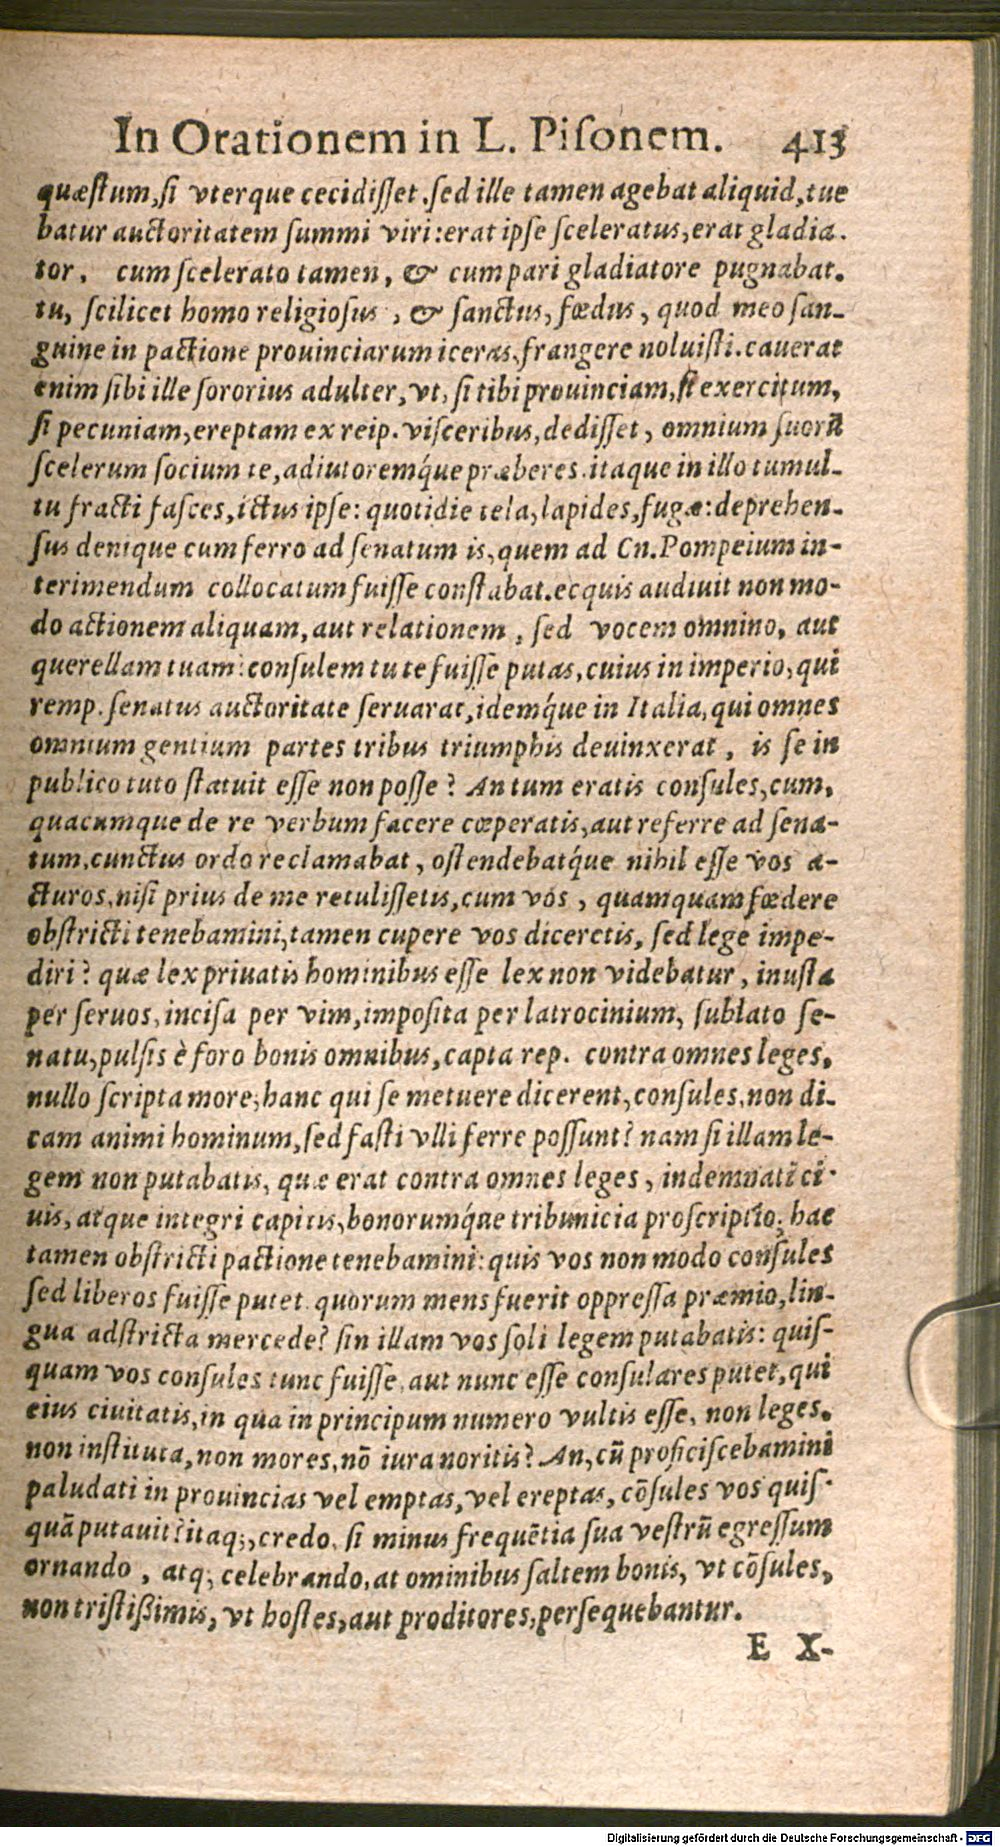 In Orationem in L. Piſonem. 413
quæſtum, ſi vterque cecidiſſet. ſed ille tamen agebat aliquid, tue
batur auctoritatem ſummi viri: erat ipſe ſceleratus, erat gladia.
tor, cum ſcelerato tamen, & cum pari gladiatore pugnabat.
tu, ſcilicet homo religioſus, & ſanctus, fœdus, quod meo ſan-
guine in pactione prouinciarum iceras, frangere noluiſti. cauerat
enim ſibi ille ſororius adulter, vt, ſi tibi prouinciam, ſi exercitum,
ſi pecuniam, ereptam ex reip. viſceribus, dediſſet, omnium ſuorũ
ſcelerum ſocium te, adiutoremq́ue præberes. itaque in illo tumul-
tu fracti faſces, ictus ipſe: quotidie tela, lapides, fugæ: deprehen-
ſus denique cum ferro ad ſenatum is, quem ad Cn. Pompeium in-
terimendum collocatum fuiſſe conſtabat. ecquis audiuit non mo-
do actionem aliquam, aut relationem, ſed vocem omnino, aut
querellam tuam: conſulem tu te fuiſſe putas, cuius in imperio, qui
remp. ſenatus auctoritate ſeruarat, idemq́ue in Italia, qui omnes
omnium gentium partes tribus triumphis deuinxerat, is ſe in
publico tuto ſtatuit eſſe non poſſe? An tum eratis conſules, cum,
quacumque de re verbum facere cœperatis, aut referre ad ſena-
tum, cunctus ordo reclamabat, oſtendebatq́ue nihil eſſe vos a-
cturos, niſi prius de me retuliſſetis, cum vos, quamquam fœdere
obſtricti tenebamini, tamen cupere vos diceretis, ſed lege impe-
diri? quæ lex priuatis hominibus eſſe lex non videbatur, inuſta
per ſeruos, inciſa per vim, impoſita per latrocinium, ſublato ſe-
natu, pulſis è foro bonis omnibus, capta rep. contra omnes leges,
nullo ſcripta more, hanc qui ſe metuere dicerent, conſules, non di-
cam animi hominum, ſed faſti vlli ferre poſſunt? nam ſi illam le-
gem non putabatis, quæ erat contra omnes leges, indemnati ci-
uis, atque integri capitis, bonorumq́ue tribunicia proſcriptio; hac
tamen obſtricti pactione tenebamini: quis vos non modo conſules
ſed liberos fuiſſe putet. quorum mens fuerit oppreſſa præmio, lin-
gua adſtricta mercede? ſin illam vos ſoli legem putabatis: quiſ-
quam vos conſules tunc fuiſſe, aut nunc eſſe conſulares putet, qui
eius ciuitatis, in qua in principum numero vultis eſſe, non leges,
non inſtituta, non mores, nõ iura noritis? An, cũ proficiſcebamini
paludati in prouincias vel emptas, vel ereptas, cõſules vos quiſ-
quã putauit? itaq;, credo, ſi minus frequẽtia ſua veſtrũ egreſſum
ornando, atq; celebrando, at ominibus ſaltem bonis, vt cõſules,
non triſtißimis, vt hoſtes, aut proditores, perſequebantur.
E X-
Digitalisierung gefördert durch die Deutsche Forschungsgemeinschaft - DFG